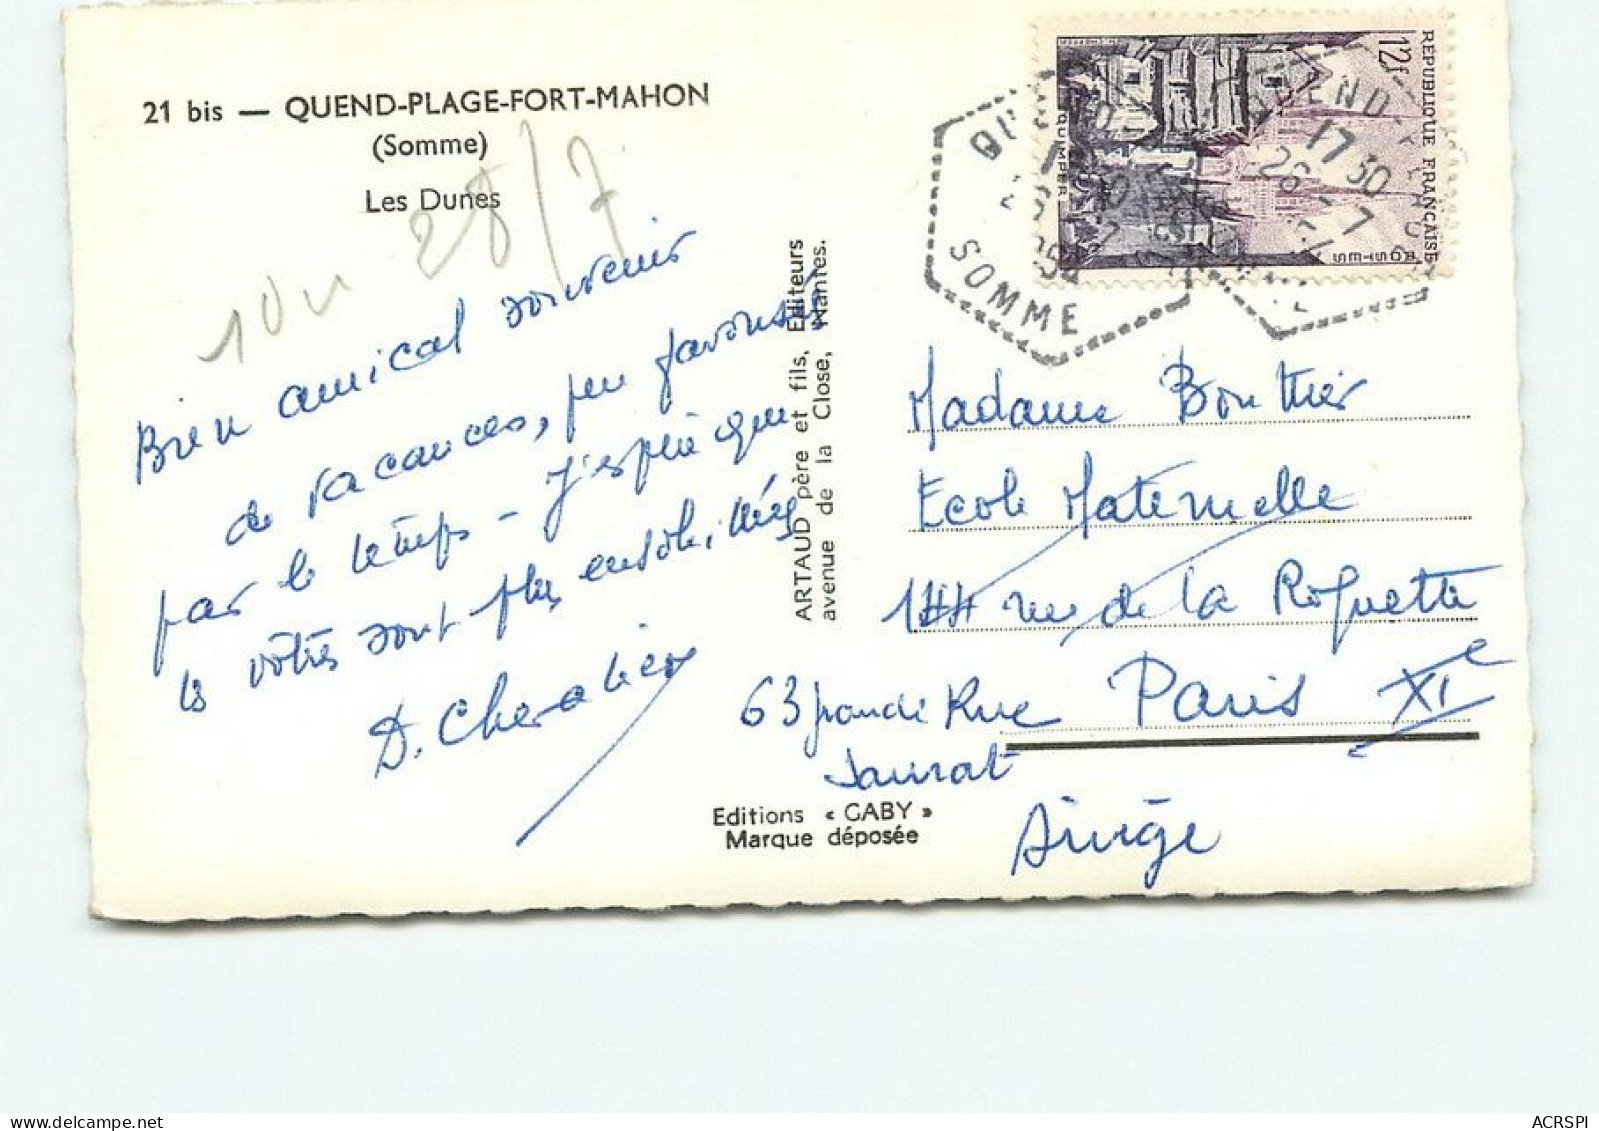 21 bis — QUEND-PLAGE-FORT-MAHON
(Somme)
Les Dunes
28/7
Bien amical souvenir
de vacances, peu favorisées
par le temps - J'espère que
les vôtres sont plus ensoleillées
D. Chevalier
ARTAUD père et fils, Editeurs
avenue de la Close, Nantes.
Editions « GABY »
Marque déposée
REPUBLIQUE FRANÇAISE
12f
QUIMPER
POSTES
QUEND-PLAGE
17 30
26 - 7
SOMME
Madame Bouthier
Ecole Maternelle
144 rue de la Roquette
Paris XIe
63 grande Rue
ACRSPI